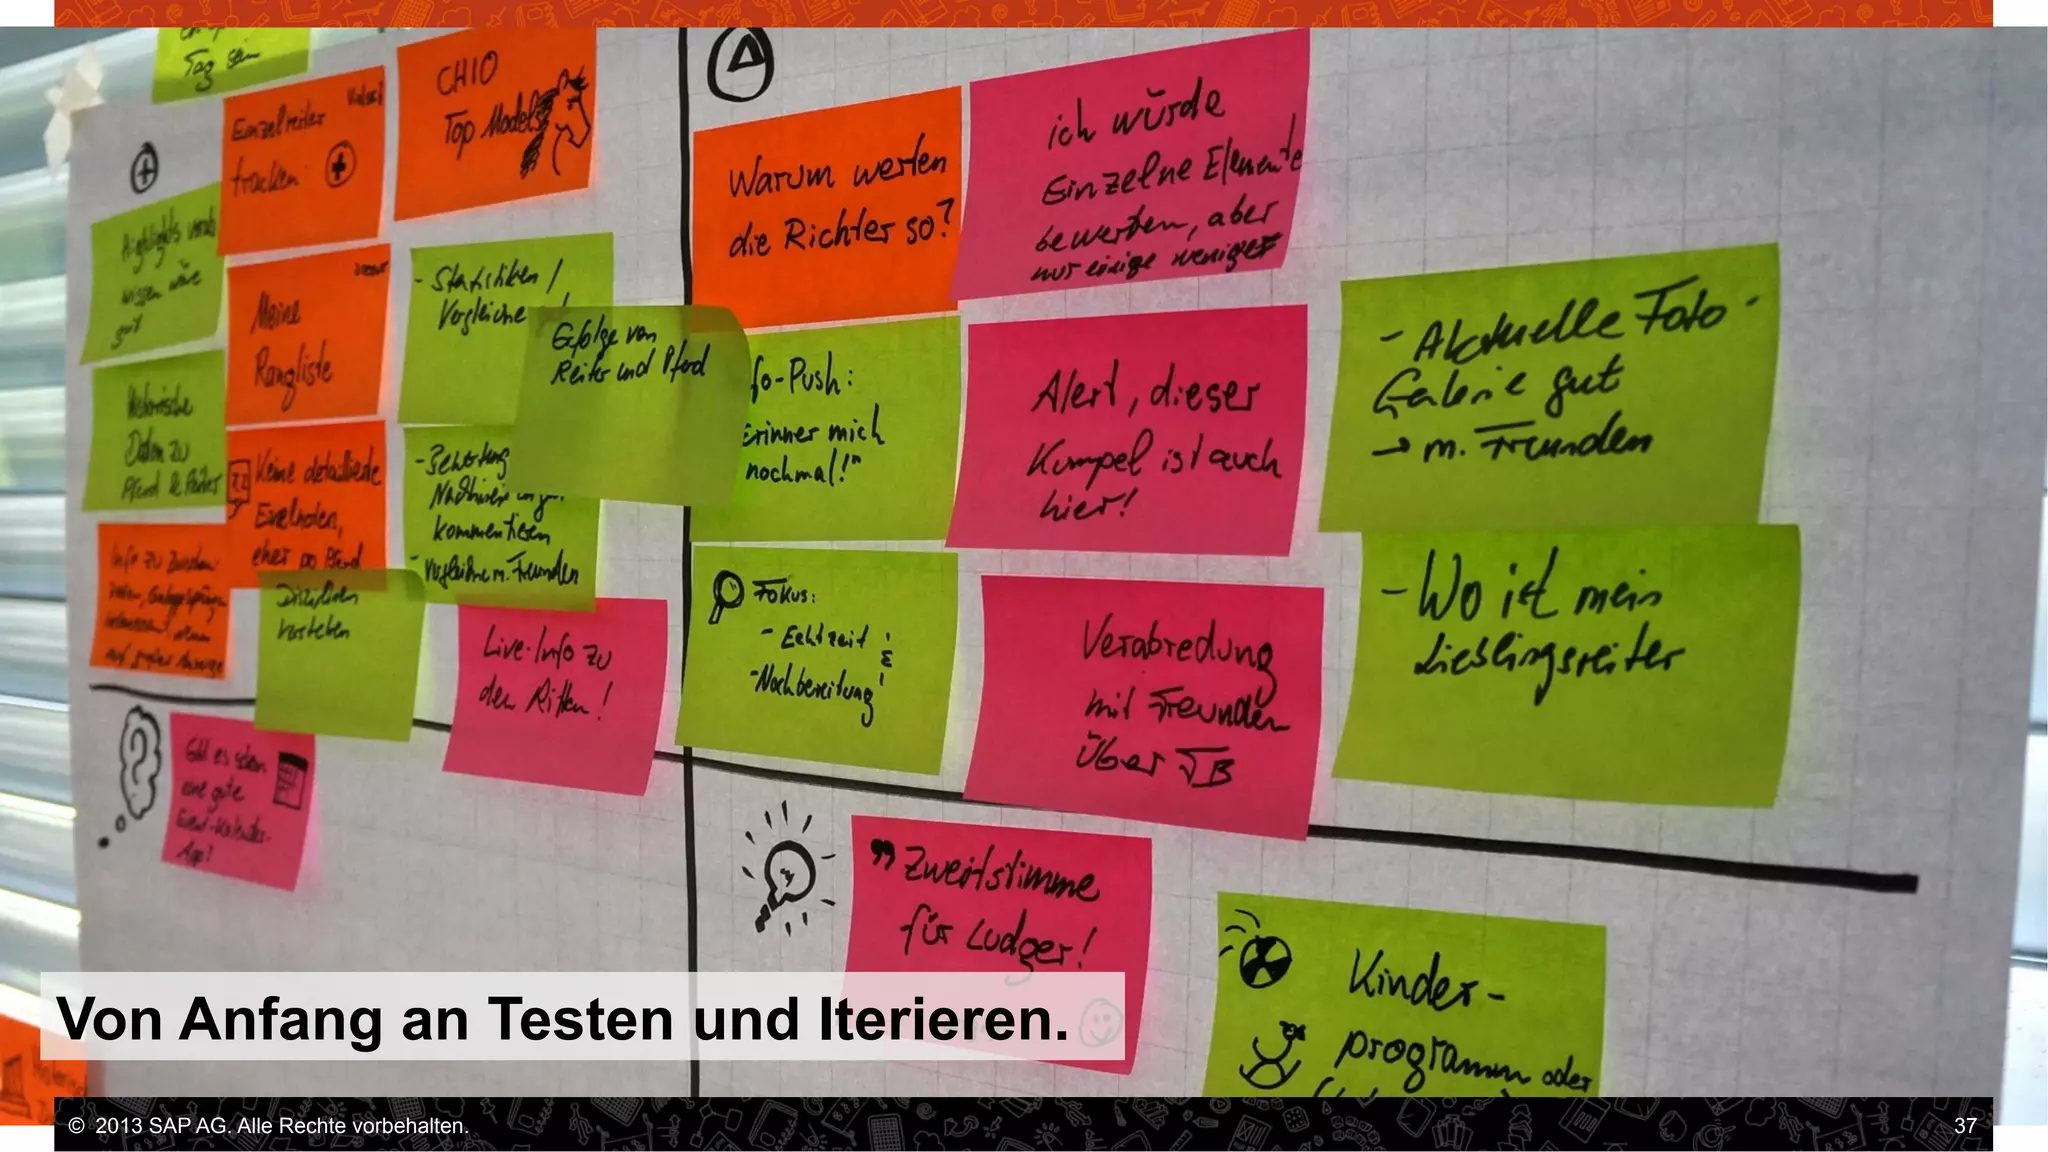 Tag sein
Einzelreiter
tracken
CHIO
Top Models
Highlights vorab
wissen wäre
gut
Meine
Rangliste
- Statistiken /
Vergleiche
Erfolge von
Reiter und Pferd
Historische
Daten zu
Pferd & Reiter
Keine detaillierte
Einzelnoten,
eher pro Pferd
- Bewertung
kommentieren
- Vergleiche m. Freunden
Info zu
Disziplinen
verstehen
Live-Info zu
den Ritten!
Gibt es schon
eine gute
Event-Kalender-
App?
Warum werten
die Richter so?
ich würde
Einzelne Elemente
bewerten, aber
nur einige weniger
fo-Push:
Erinner mich
nochmal!"
Alert, dieser
Kumpel ist auch
hier!
- Aktuelle Foto-
Galerie gut
→ m. Freunden
Fokus:
- Echtzeit &
- Nachbereitung!
Verabredung
mit Freunden
über FB
- Wo ist mein
Lieblingsreiter
"Zweitstimme
für Ludger!
Kinder-
programm oder
Von Anfang an Testen und Iterieren.
© 2013 SAP AG. Alle Rechte vorbehalten.
37